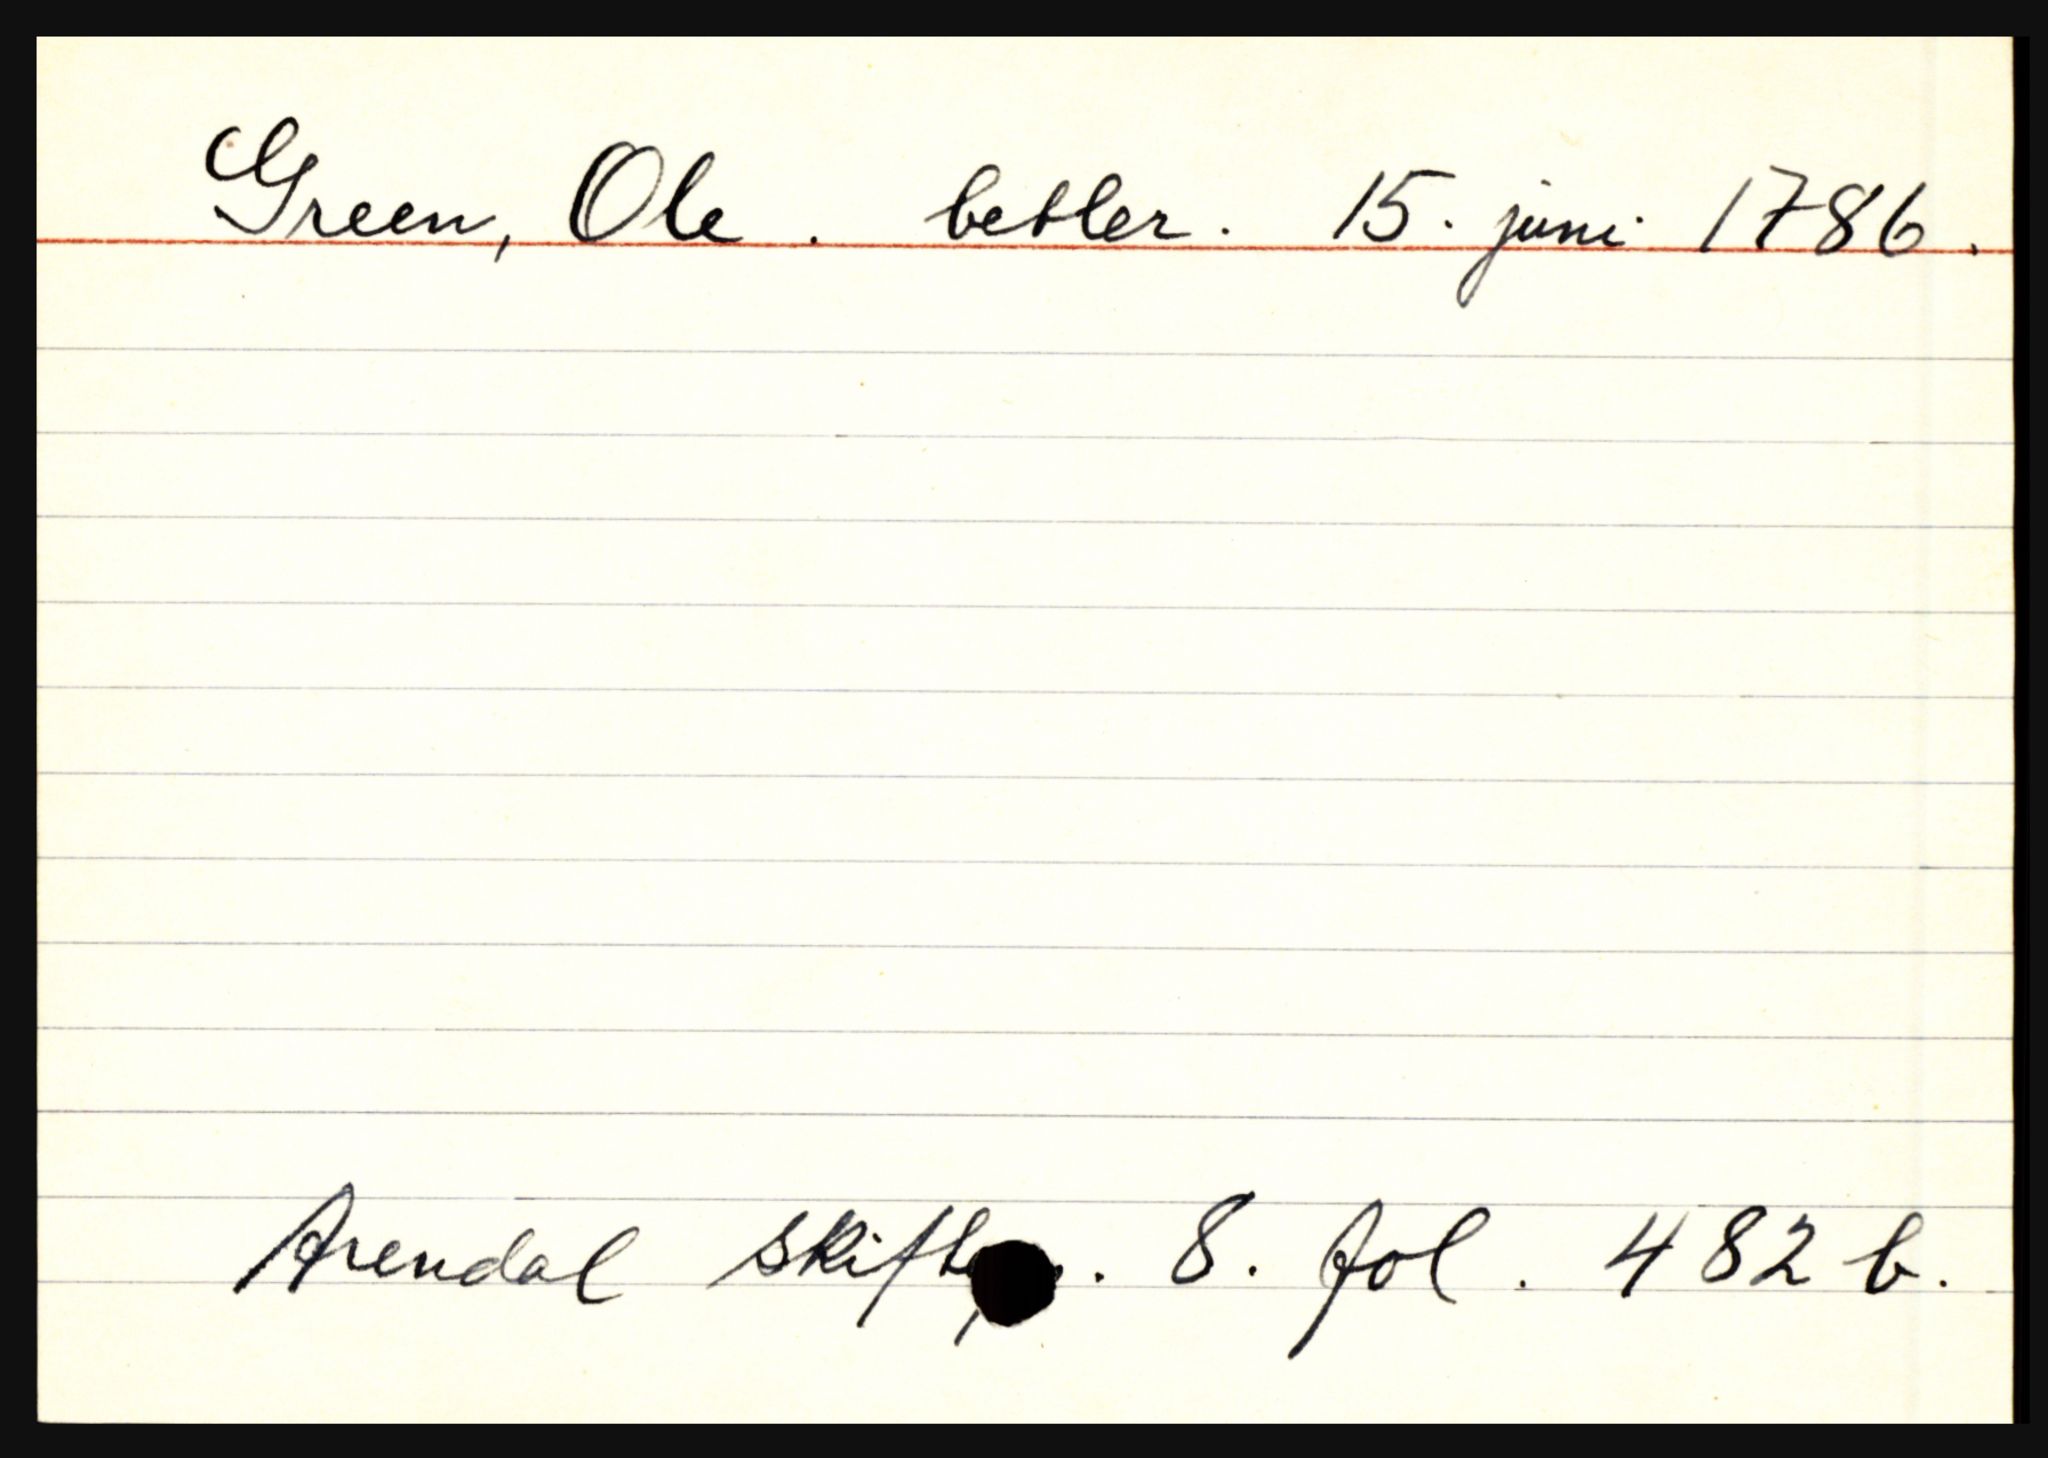 Green, Ole . betler. 15. juni 1786.
Arendal skift . 8. fol. 482 b.